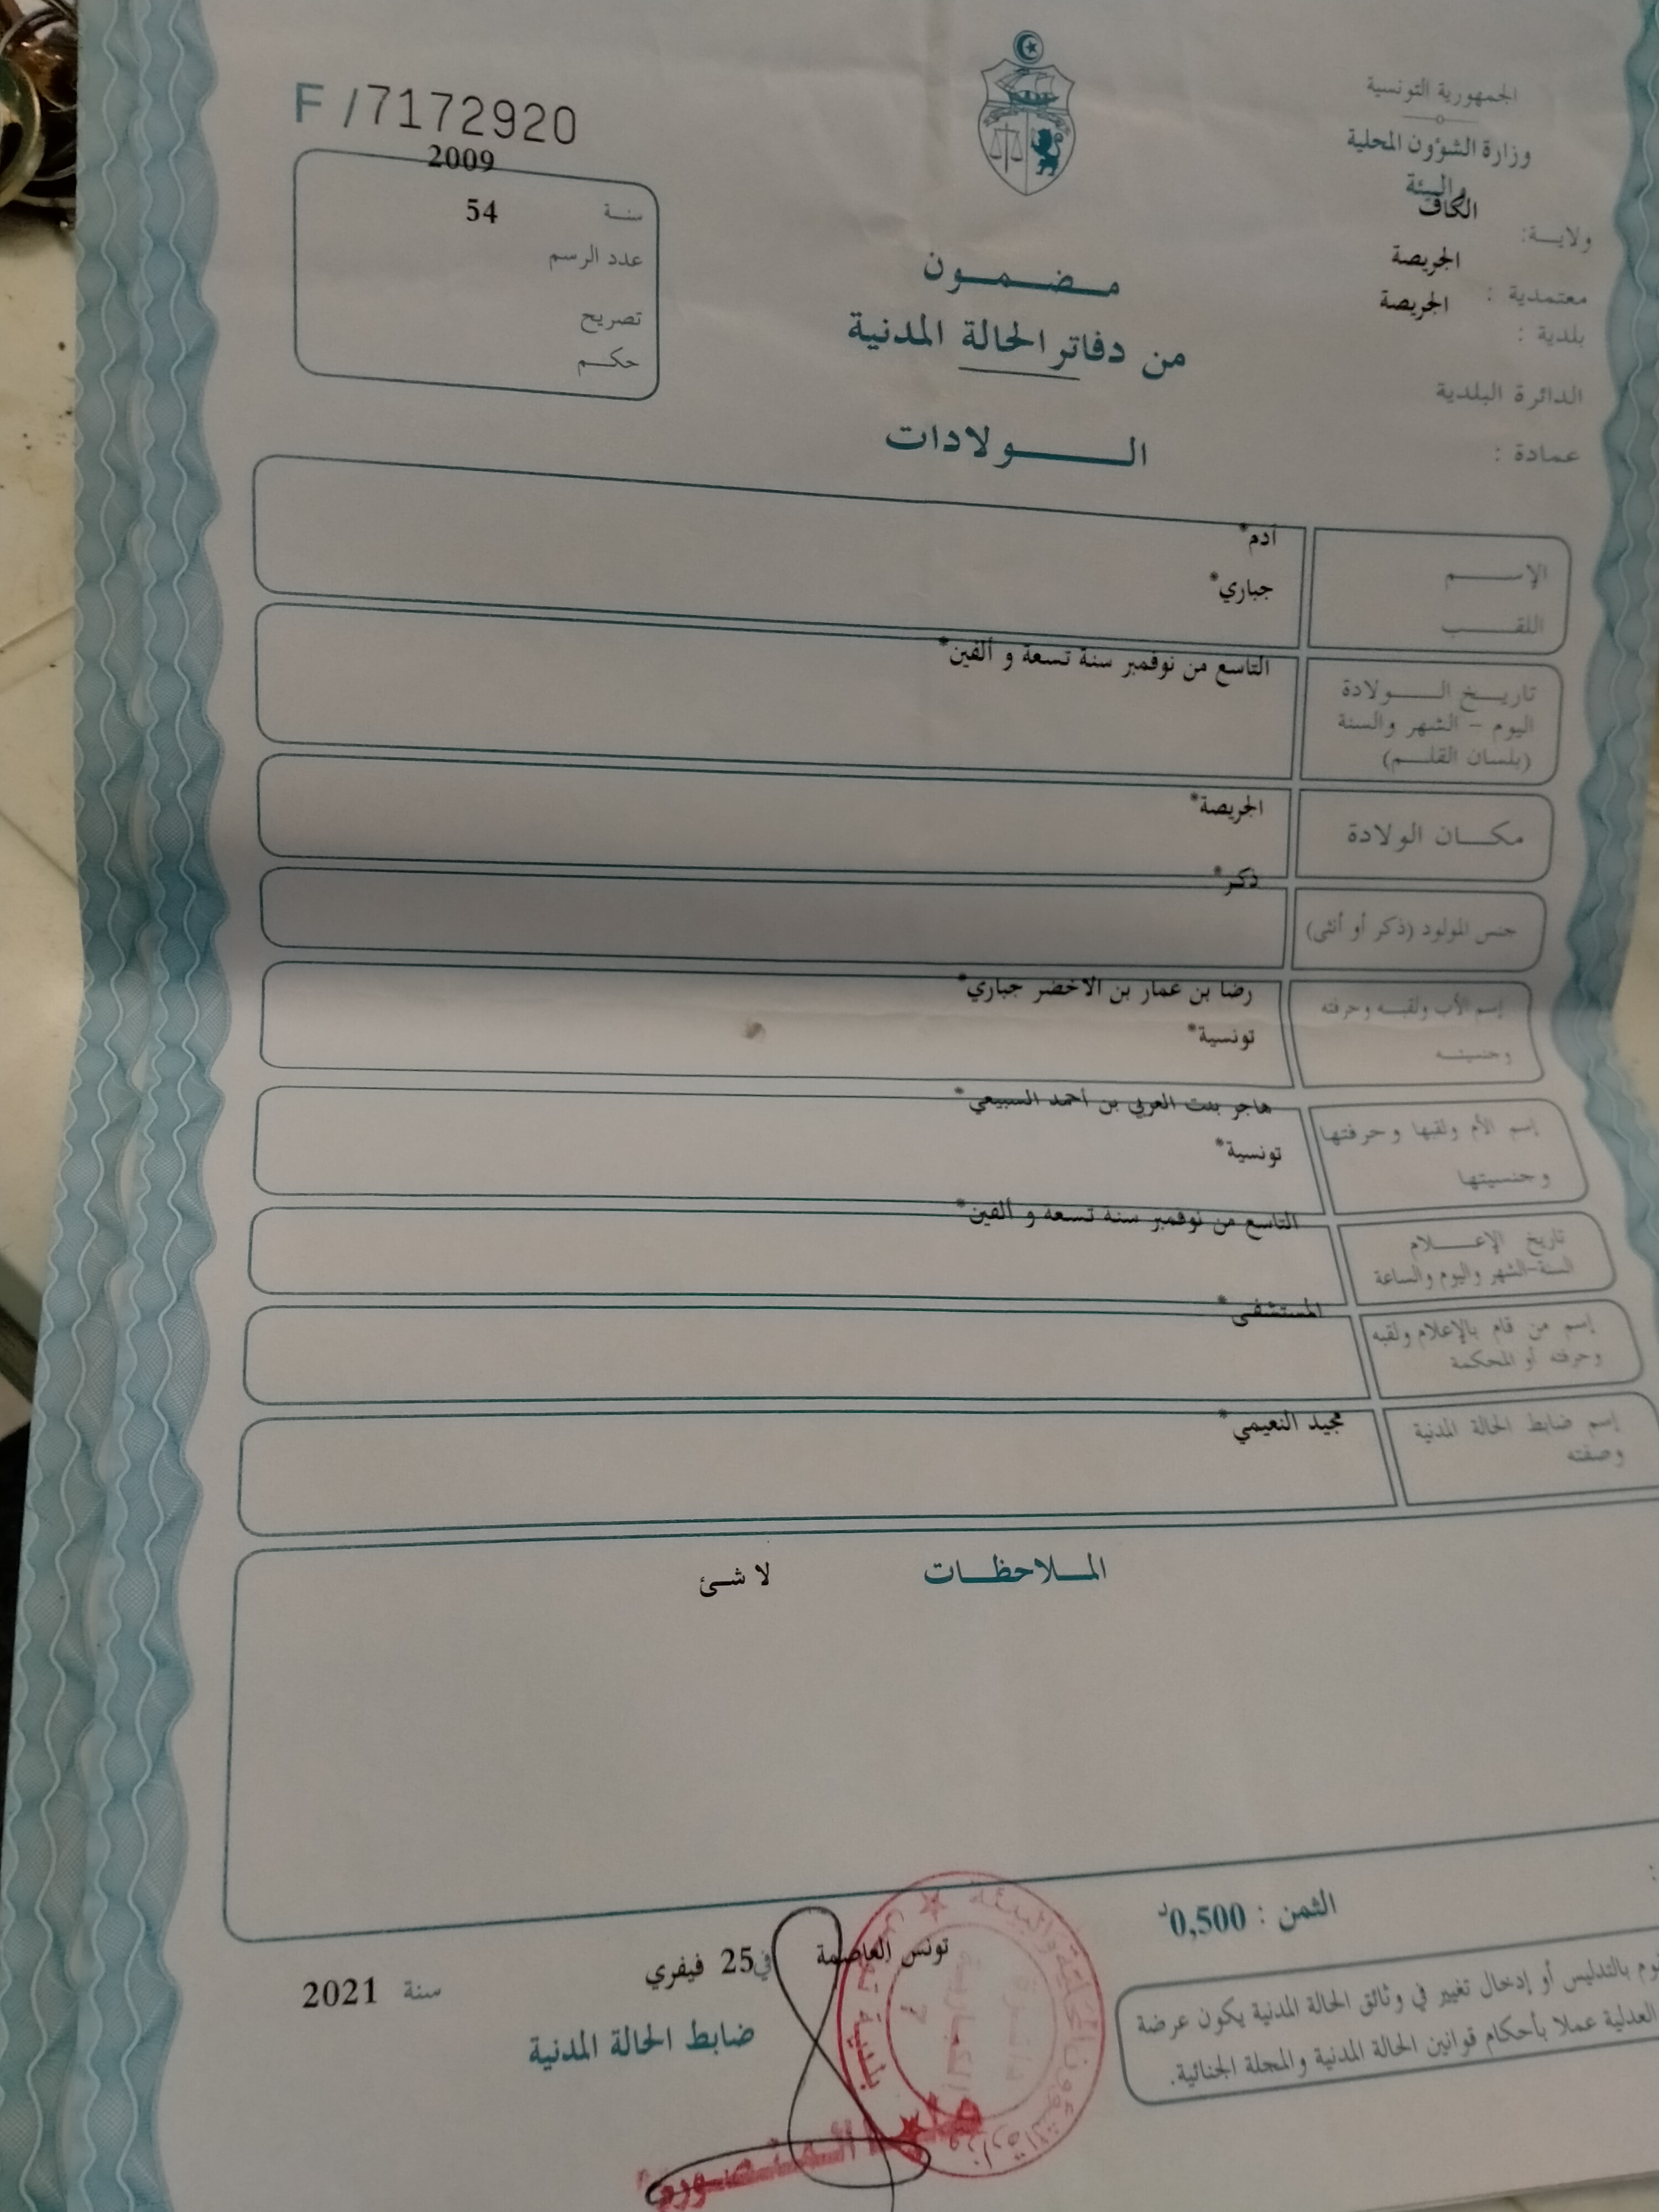 الجمهورية التونسية
وزارة الشؤون المحلية
والبيئة
ولايـــة: الكاف
معتمدية : الجريصة
بلدية : الجريصة
الدائرة البلدية
عمادة :
F /7172920
سنــة 2009
عدد الرسم 54
تصريح
حكــم
مـــضـــمـــون
من دفاتر الحالة المدنية
الـــــولادات
الإســـــم آدم*
اللقـــــب جباري*
تاريـــخ الـــــولادة التاسع من نوفمبر سنة تسعة و ألفين*
اليوم - الشهر والسنة
(بلسان القلـــم)
مكـــان الولادة الجريصة*
جنس المولود (ذكر أو أنثى) ذكر*
إسم الأب ولقبـــه وحرفته رضا بن عمار بن الاخضر جباري*
وجنسيتـــه تونسية*
إسم الأم ولقبها وحرفتها هاجر بنت العربي بن أحمد السبيعي*
وجنسيتها تونسية*
تاريخ الإعـــــلام التاسع من نوفمبر سنة تسعة و ألفين*
السنة-الشهر واليوم والساعة
إسم من قام بالإعلام ولقبه المستشفى*
وحرفته أو المحكمة
إسم ضابط الحالة المدنية مجيد النعيمي*
وصفته
المـــلاحظـــات لا شئ
الثمن : 0,500د
تونس العاصمة في 25 فيفري سنة 2021
ضابط الحالة المدنية
بالتدليس أو إدخال تغيير في وثائق الحالة المدنية يكون عرضة
العدلية عملا بأحكام قوانين الحالة المدنية والمجلة الجنائية.